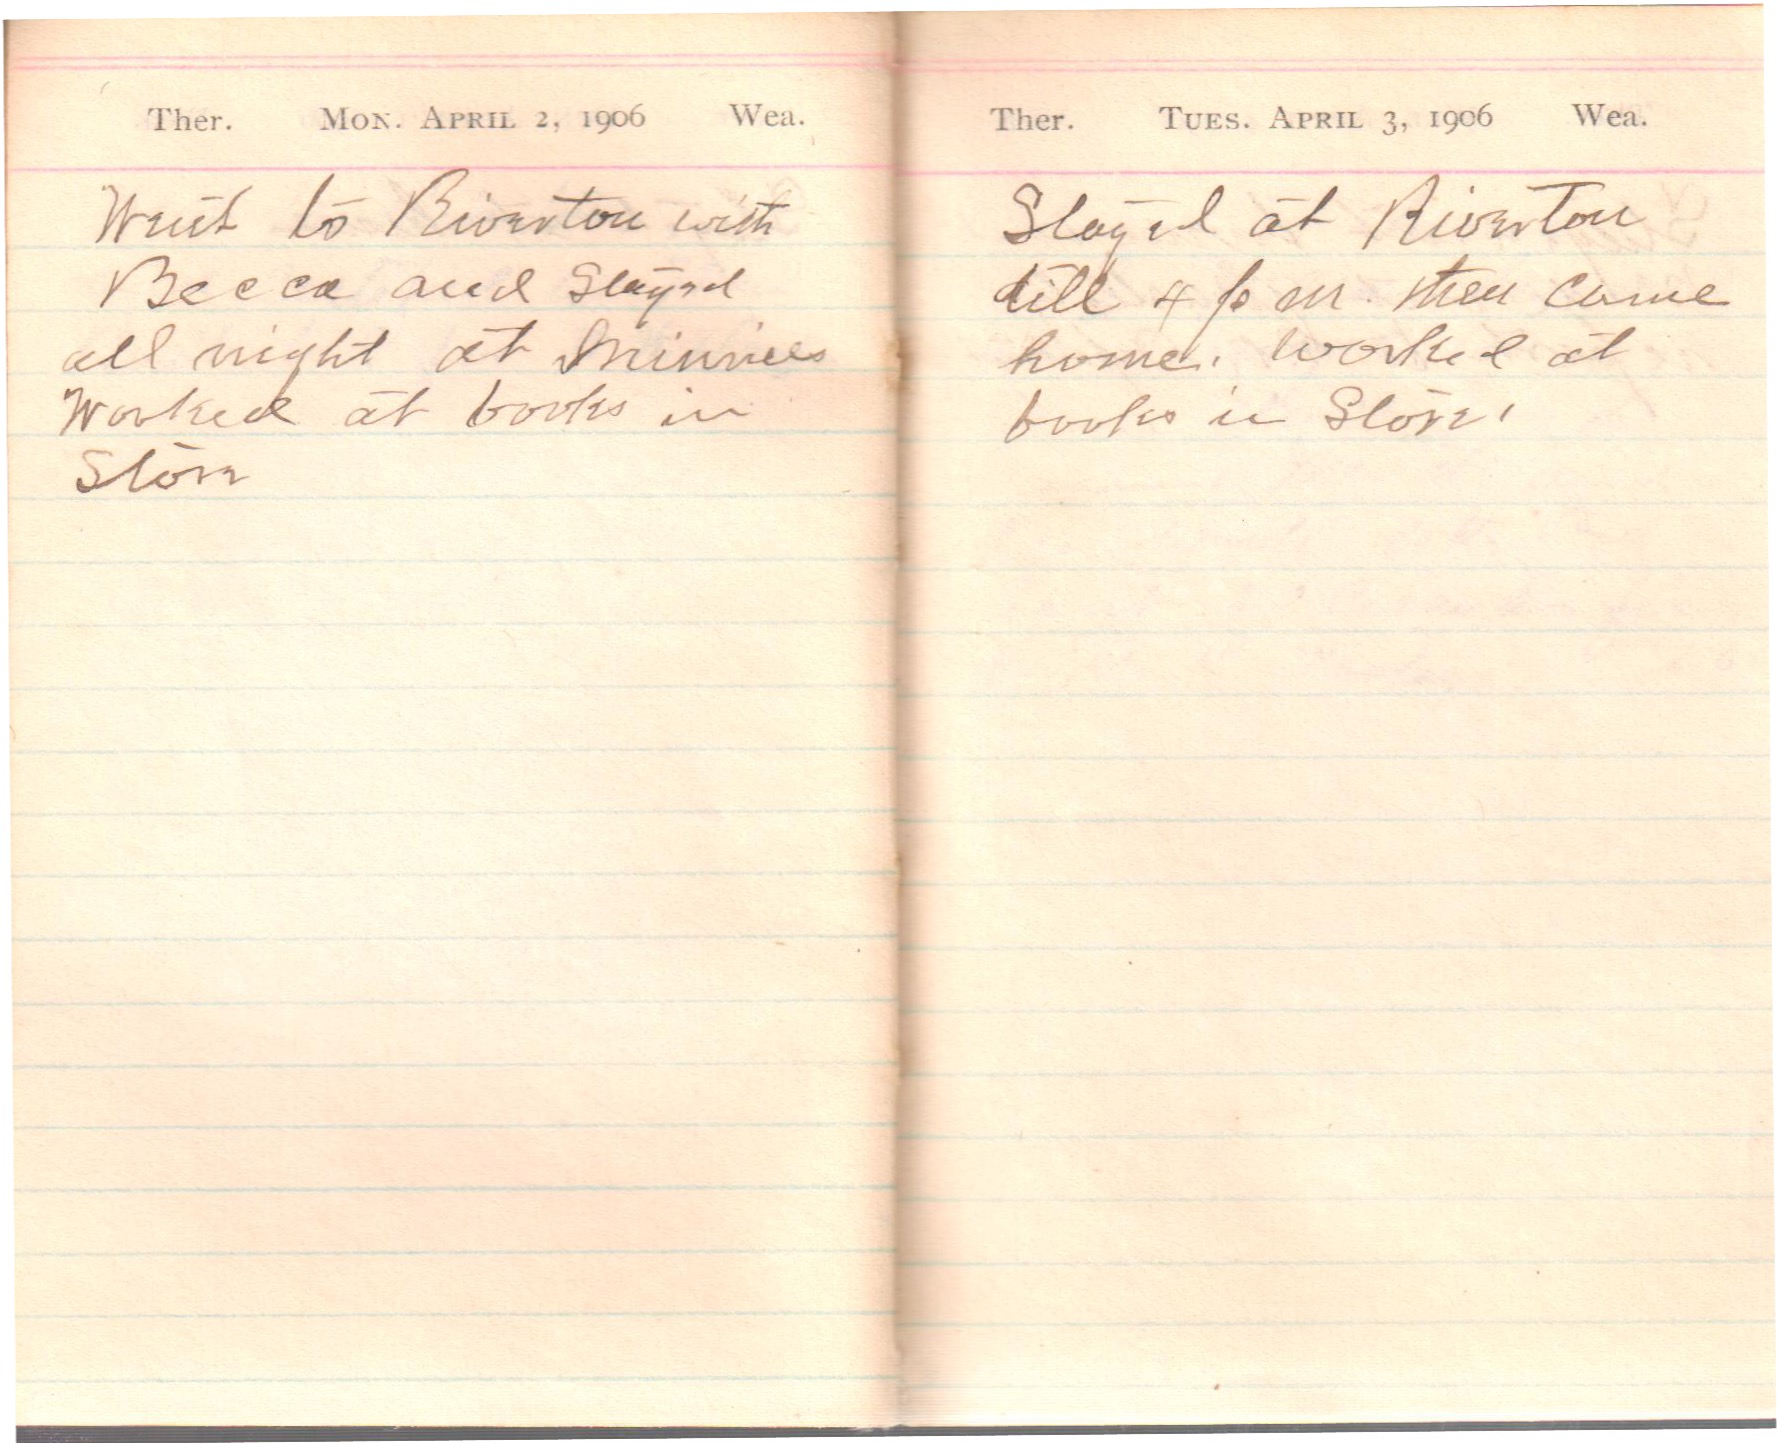 Ther. Mon. April 2, 1906 Wea.
Went to Riverton with
Becca and Stayed
all night at Minnies
Worked at books in
Store
Ther. Tues. April 3, 1906 Wea.
Stayed at Riverton
till 4 p m. then came
home. Worked at
books in Store.